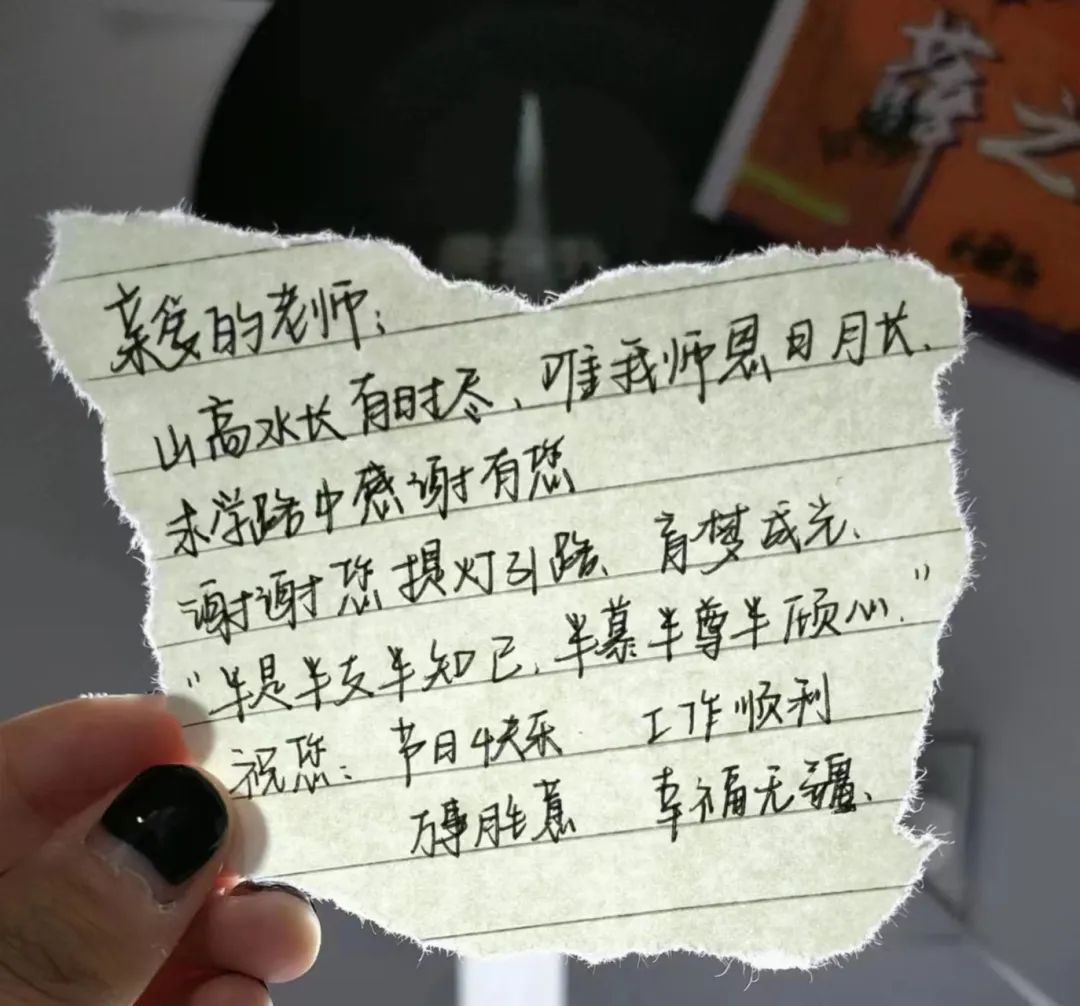 亲爱的老师:
山高水长有时尽、唯我师恩日月长.
求学路中感谢有您
谢谢您提灯引路、育梦成光、
"半是半友半知己.半慕半尊半倾心."
祝您: 节日快乐 工作顺利
万事胜意 幸福无疆、
薛之